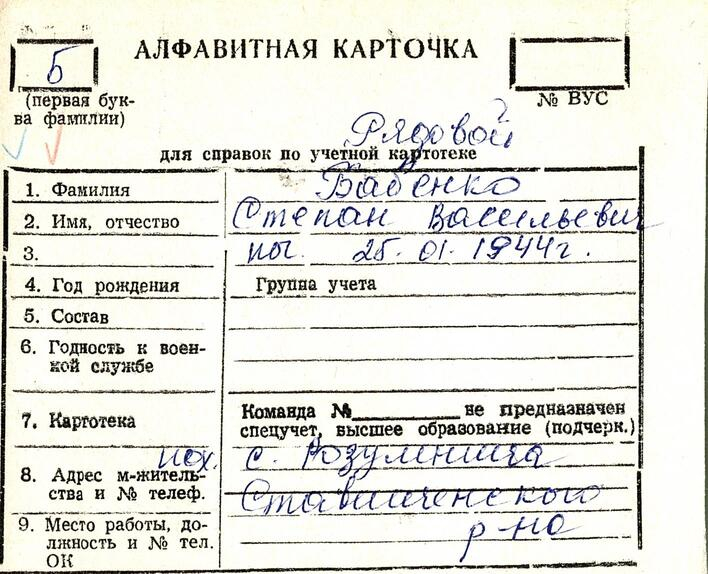 Б
АЛФАВИТНАЯ КАРТОЧКА
(первая бук-
ва фамилии)
№ ВУС
Рядовой
для справок по учетной картотеке
1. Фамилия Бабенко
2. Имя, отчество Степан Васильевич
3. пог. 25.01.1944г.
4. Год рождения Группа учета
5. Состав
6. Годность к воен-
ной службе
7. Картотека Команда №________ не предназначен
спецучет, высшее образование (подчерк.)
пох. с. Розумница
8. Адрес м-житель-
ства и № телеф. Ставищенского
9. Место работы, до- р-на
лжность и № тел.
ОК